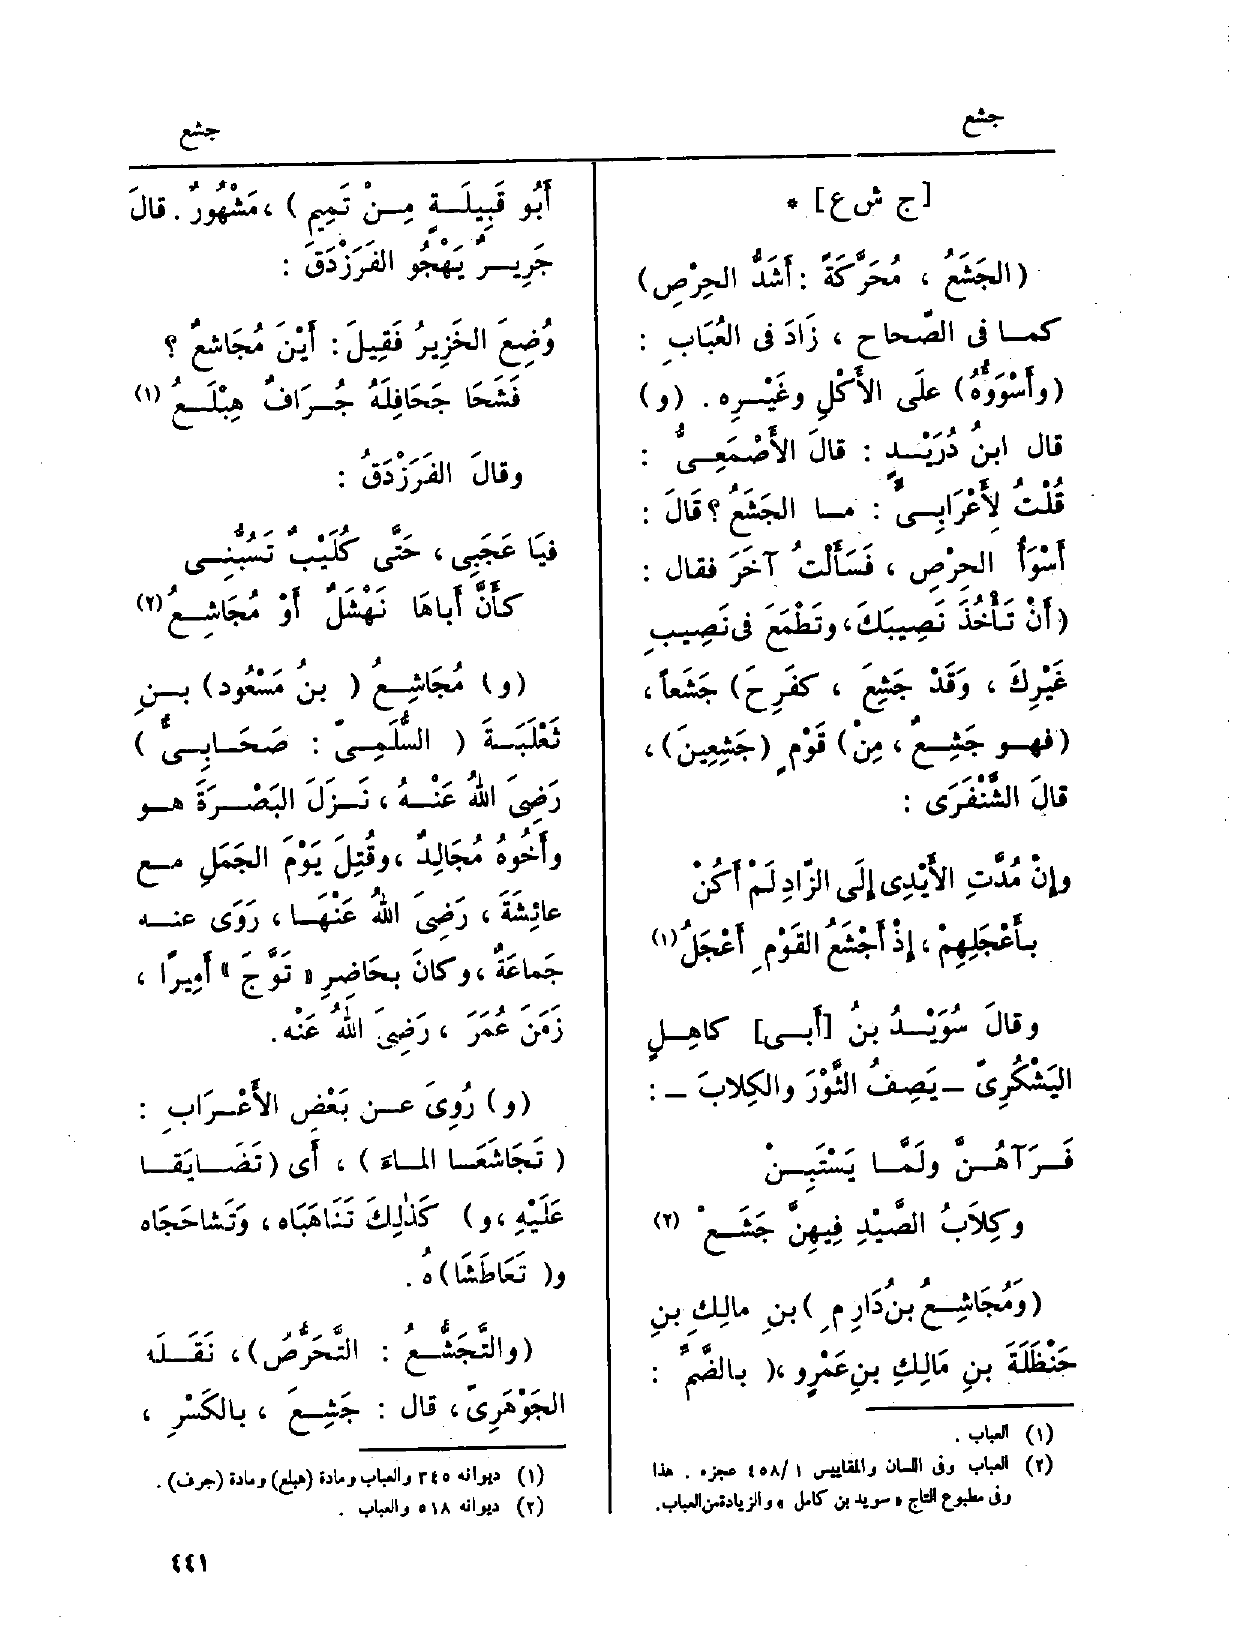 جشع
جشع
[ج ش ع] *
(الجَشَعُ ، مُحَرَّكَةً : أَشَدُّ الحِرْصِ)
كما فى الصّحاح ، زَادَ فى العُبَابِ :
(وأَسْوَؤُهُ) علَى الأَكْلِ وغَيْرِه . (و)
قال ابنُ دُرَيْدٍ : قالَ الأَصْمَعِىُّ :
قُلْتُ لِأَعْرَابِىٍّ : ما الجَشَعُ ؟ قَالَ :
أَسْوَأُ الحِرْصِ ، فَسَأَلْتُ آخَرَ فقال :
(أَنْ تَأْخُذَ نَصِيبَكَ، وتَطْمَعَ فى نَصِيبِ
غَيْرِكَ ، وَقَدْ جَشِعَ ، كفَرِحَ) جَشَعاً ،
(فهو جَشِعٌ ، مِنْ) قَوْمٍ (جَشِعِينَ)،
قالَ الشَّنْفَرَى :
وإنْ مُدَّتِ الأَيْدِى إلَى الزّادِ لَمْ أَكُنْ
بأَعْجَلِهِمْ ، إذْ أَجْشَعُ القَوْمِ أَعْجَلُ (١)
وقالَ سُوَيْدُ بنُ [أَبى] كاهِلٍ
اليَشْكُرِىّ – يَصِفُ الثَّوْرَ والكِلابَ – :
فَرَآهُنَّ ولَمَّا يَسْتَبِنْ
وكِلاَبُ الصَّيْدِ فِيهِنَّ جَشَعْ (٢)
(وَمُجَاشِعُ بنُ دَارِمِ ) بنِ مالِكِ بنِ
حَنْظَلَةَ بنِ مَالِكِ بنِ عَمْرٍو ،( بالضَّمِّ :
(١) العباب .
(٢) العباب وفى اللسان والمقاييس ١ /٤٥٨ عجزه . هذا
وفى مطبوع التاج « سويد بن كامل » والزيادة من العباب.
أَبُو قَبِيلَةٍ مِنْ تَمِيمٍ ) ، مَشْهُورٌ . قالَ
جَرِيرٌ يَهْجُو الفَرَزْدَقَ :
وُضِعَ الخَزِيرُ فَقِيلَ : أَيْنَ مُجَاشِعٌ ؟
فَشَحَا جَحَافِلَهُ جُرَافٌ هِبْلَعُ (١)
وقالَ الفَرَزْدَقُ :
فيَا عَجَبِى ، حَتَّى كُلَيْبٌ تَسُبُّنِى
كأَنَّ أَباهَا نَهْشَلٌ أَوْ مُجَاشِعُ (٢)
(و) مُجَاشِعُ ( بنُ مَسْعُود) بنِ
ثَعْلَبَةَ ( السُّلَمِىّ : صَحَابِىٌّ )
رَضِىَ اللهُ عَنْهُ ، نَزَلَ البَصْرَةَ هو
وأَخُوهُ مُجَالِدٌ ، وقُتِلَ يَوْمَ الجَمَلِ مع
عائِشَةَ ، رَضِىَ اللهُ عَنْهَا ، رَوَى عنه
جَماعَةٌ ، وكانَ بحَاضِرِ « تَوَّجَ » أَمِيرًا ،
زَمَنَ عُمَرَ ، رَضِىَ اللهُ عَنْه.
(و) رُوِىَ عن بَعْضِ الأَعْرَابِ :
( تَجَاشَعَا الماءَ ) ، أَى (تَضَايَقا
عَلَيْهِ ، و) كَذٰلِكَ تَنَاهَبَاه ، وَتَشَاحَّاه
و( تَعَاطَشَا)هُ .
(والتَّجَشُّعُ : التَّحَرُّصُ) ، نَقَلَه
الجَوْهَرِىّ ، قال : جَشِعَ ، بالكَسْرِ ،
(١) ديوانه ٣٤٥ والعباب ومادة (هبلع) ومادة (جرف).
(٢) ديوانه ٥١٨ والعباب .
٤٤١